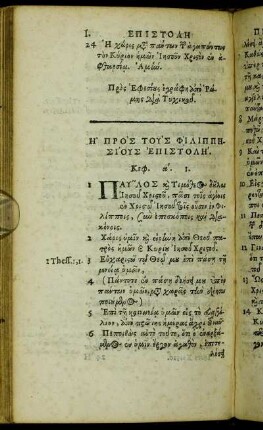 I. ΕΠΙΣΤΟΛΗ
24 Ἡ χάρις μετὰ πάντων τῶν ἀγαπώντων
τὸν Κύριον ἡμῶν Ἰησοῦν Χριστὸν ἐν ἀ-
φθαρσίᾳ. Ἀμήν.
Πρὸς Ἐφεσίους ἐγράφη ἀπὸ Ῥώ-
μης διὰ Τυχικοῦ.
Ἡ ΠΡΟΣ ΤΟΥΣ ΦΙΛΙΠΠΗ-
ΣΙΟΥΣ ΕΠΙΣΤΟΛΗ.
Κεφ. α. 1.
1 ΠΑΥΛΟΣ καὶ Τιμόθεος δοῦλοι
Ἰησοῦ Χριστοῦ, πᾶσι τοῖς ἁγίοις
ἐν Χριστῷ Ἰησοῦ τοῖς οὖσιν ἐν Φι-
λίπποις, σὺν ἐπισκόποις καὶ δια-
κόνοις.
2 Χάρις ὑμῖν καὶ εἰρήνη ἀπὸ Θεοῦ πα-
τρὸς ἡμῶν καὶ Κυρίου Ἰησοῦ Χριστοῦ.
1 Thess. 1.2. 3 Εὐχαριστῶ τῷ Θεῷ μου ἐπὶ πάσῃ τῇ
μνείᾳ ὑμῶν,
4 (Πάντοτε ἐν πάσῃ δεήσει μου ὑπὲρ
πάντων ὑμῶν, μετὰ χαρᾶς τὴν δέησιν
ποιούμενος)
5 Ἐπὶ τῇ κοινωνίᾳ ὑμῶν εἰς τὸ εὐαγγέ-
λιον, ἀπὸ πρώτης ἡμέρας ἄχρι τοῦ νῦν·
6 Πεποιθὼς αὐτὸ τοῦτο, ὅτι ὁ ἐναρξά-
μενος ἐν ὑμῖν ἔργον ἀγαθὸν, ἐπιτε-
λέσει